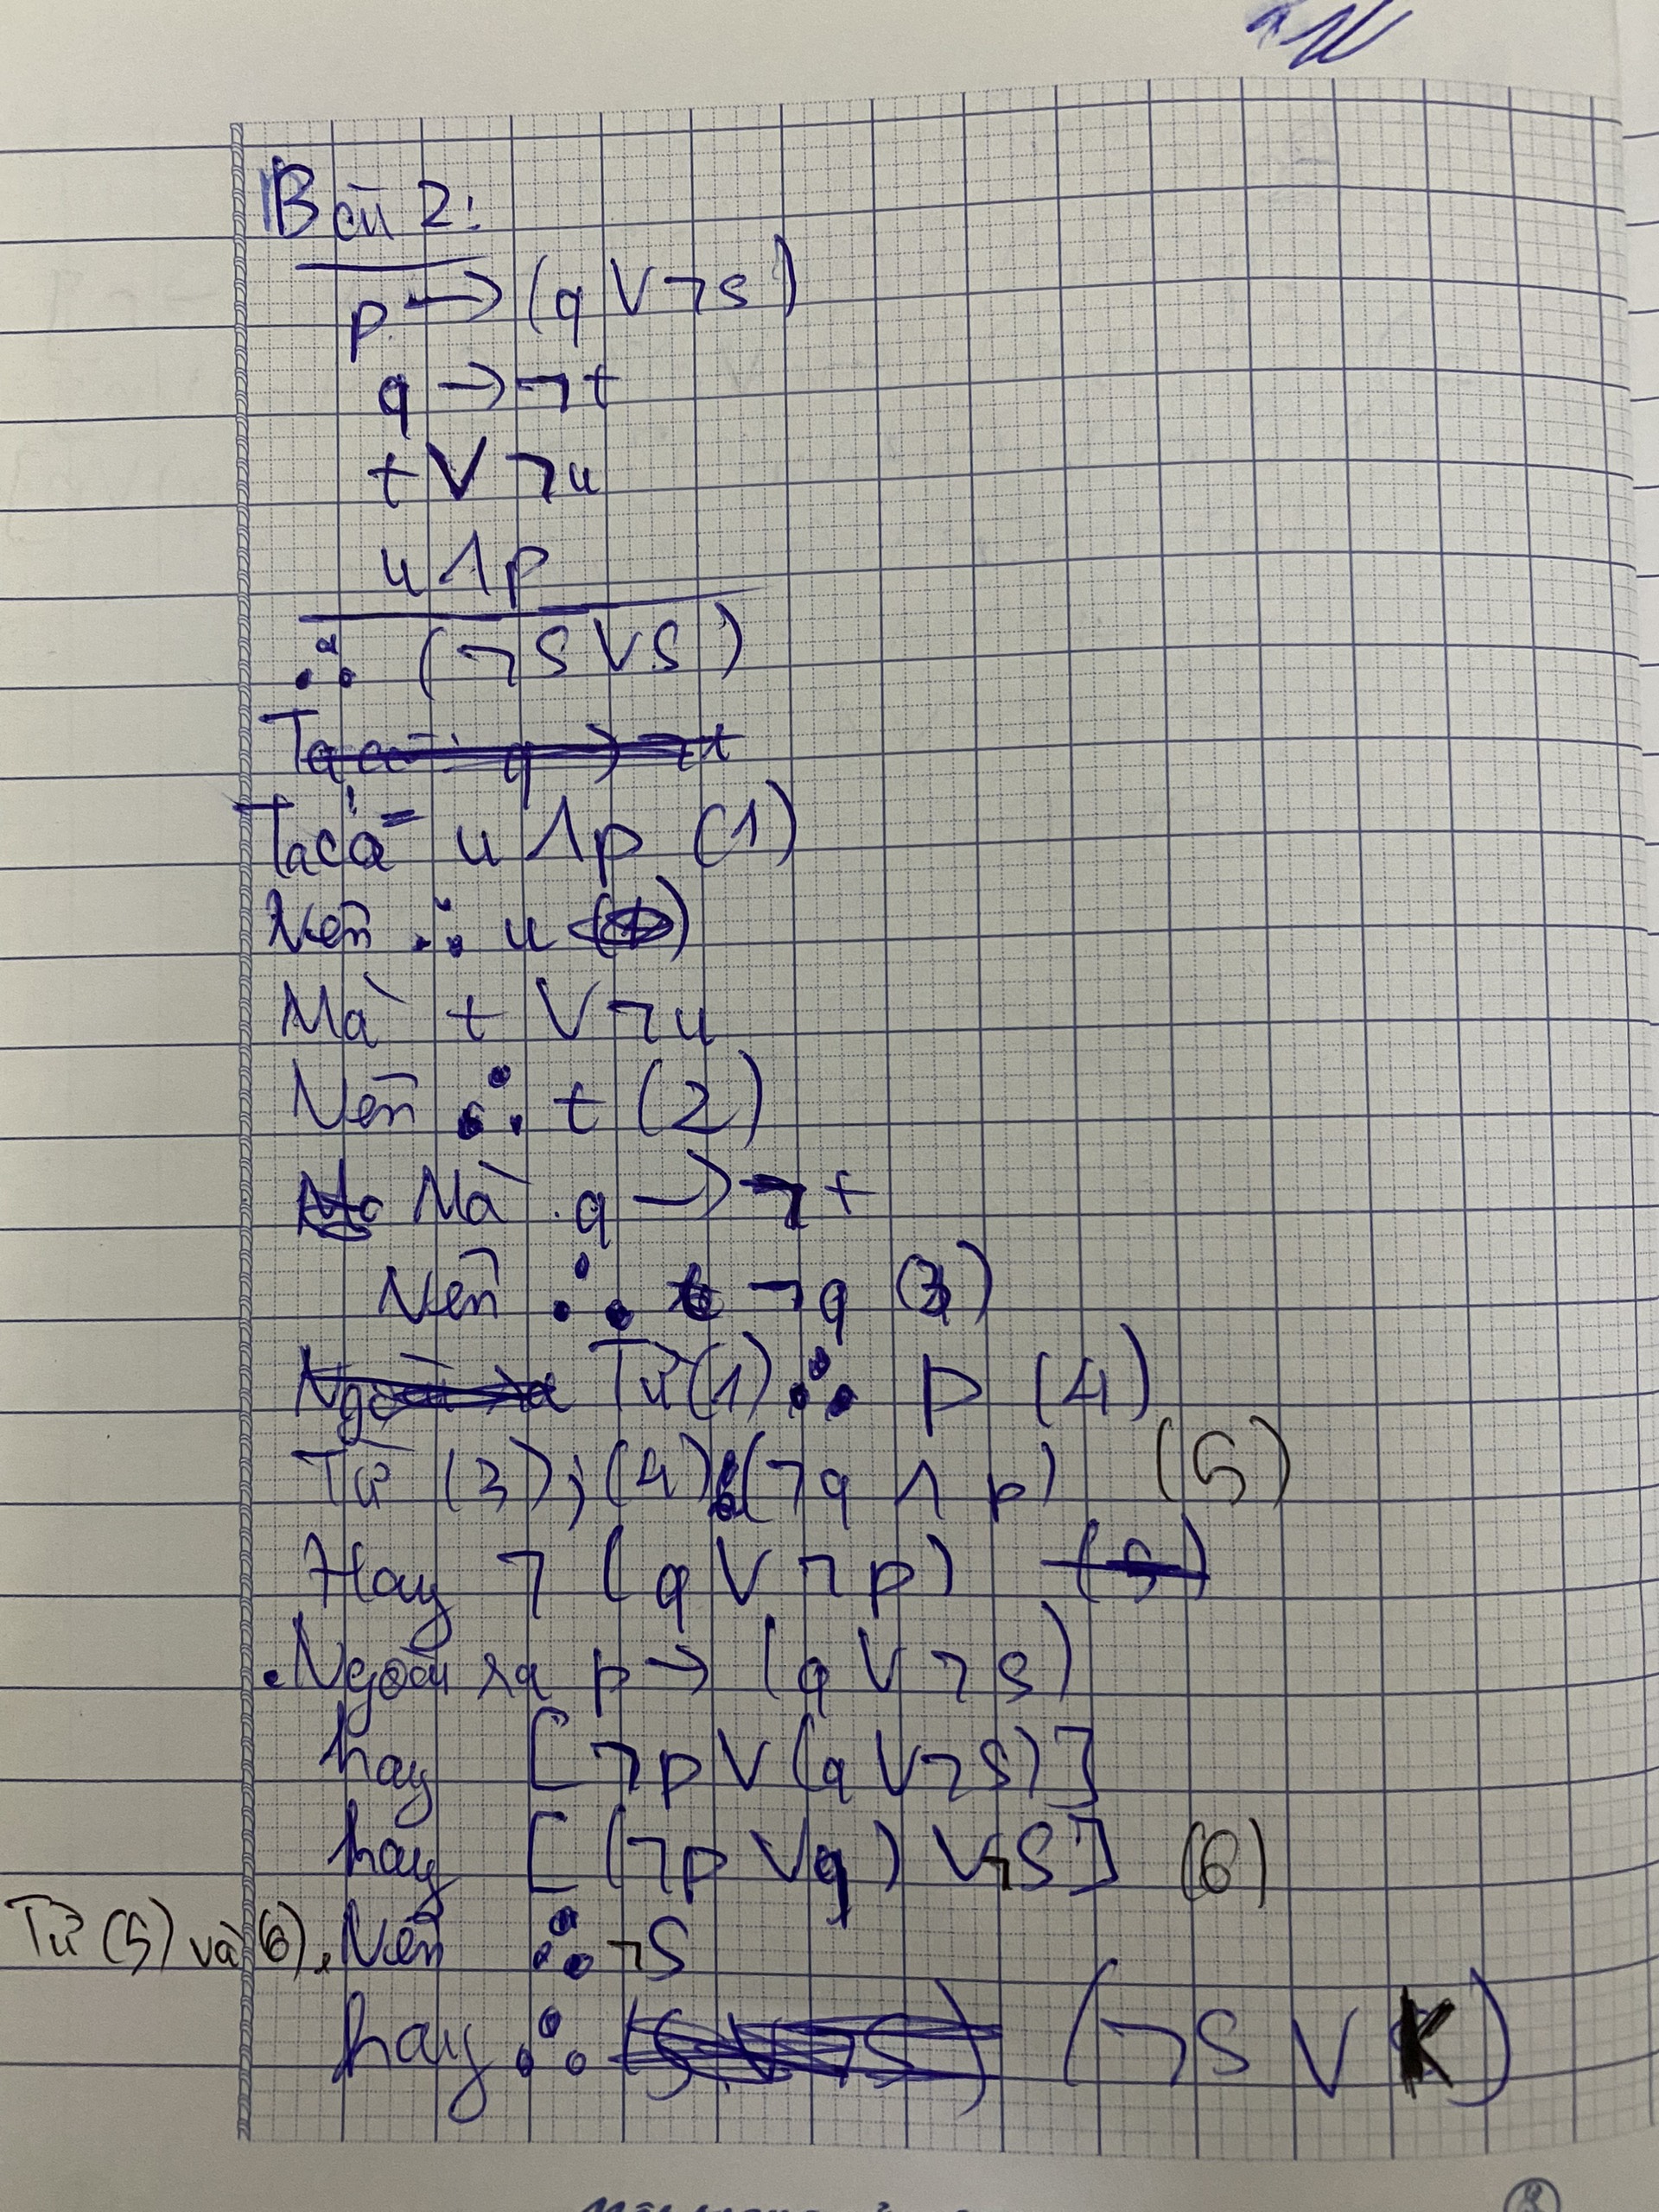 Bài 2:
p → (q ∨ ¬s)
q → ¬t
t ∨ ¬u
u ∧ p
∴ (¬s ∨ s)
Ta có: q → ¬t
Ta có: u ∧ p (1)
Nên ∴ u
Mà t ∨ ¬u
Nên ∴ t (2)
Mà q → ¬t
Nên ∴ ¬q (3)
Từ (1) ∴ p (4)
Từ (3); (4) (¬q ∧ p) (5)
Hay ¬ (q ∨ ¬p) (5)
. Ngoài ra p → (q ∨ ¬s)
hay [¬p ∨ (q ∨ ¬s)]
hay [(¬p ∨ q) ∨ ¬s] (6)
Từ (5) và (6), Nên ∴ ¬s
hay ∴ (s ∨ ¬s) (¬s ∨ K)